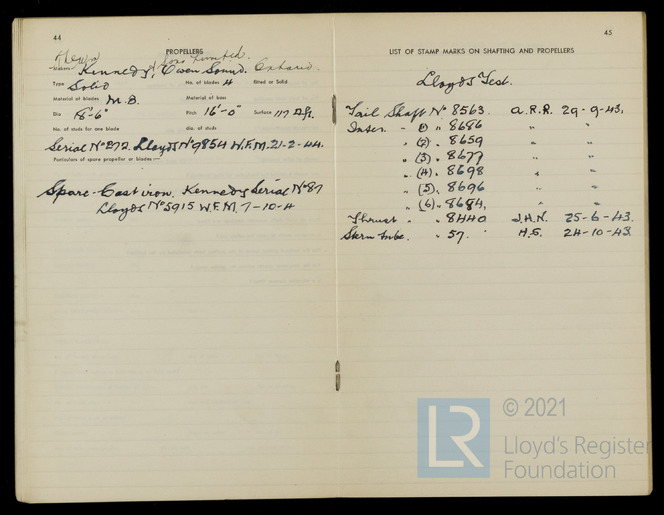 44
PROPELLERS
& Sons Limited.
Makers Kennedy, Owen Sound. Ontario.
Type Solid No. of blades 4 Bitted or Solid
Material of blades M.B. Material of boss
Dia 18'-6" Pitch 16'-0" Surface 117
No. of studs for one blade dia. of studs
Serial No 272. Lloyds No 9854 W.F.M. 21-2-44.
Particulars of spare propeller or blades
Spare-Cast iron. Kennedy Serial No 87
Lloyds No 5915 W.F.M. 7-10-4
45
LIST OF STAMP MARKS ON SHAFTING AND PROPELLERS
Lloyds Test.
Tail Shaft No 8563. A.R.R. 29-9-43.
Inter. " (1) " 8686 " "
" (2) " 8659 " "
" (3) " 8677 " "
" (4) " 8698 " "
" (5) " 8696 " "
" (6) " 8684. " "
Thrust " " 8440 J.H.N. 25-6-43.
Stern tube. " 57. H.S. 24-10-43.
LR © 2021
Lloyd's Register
Foundation